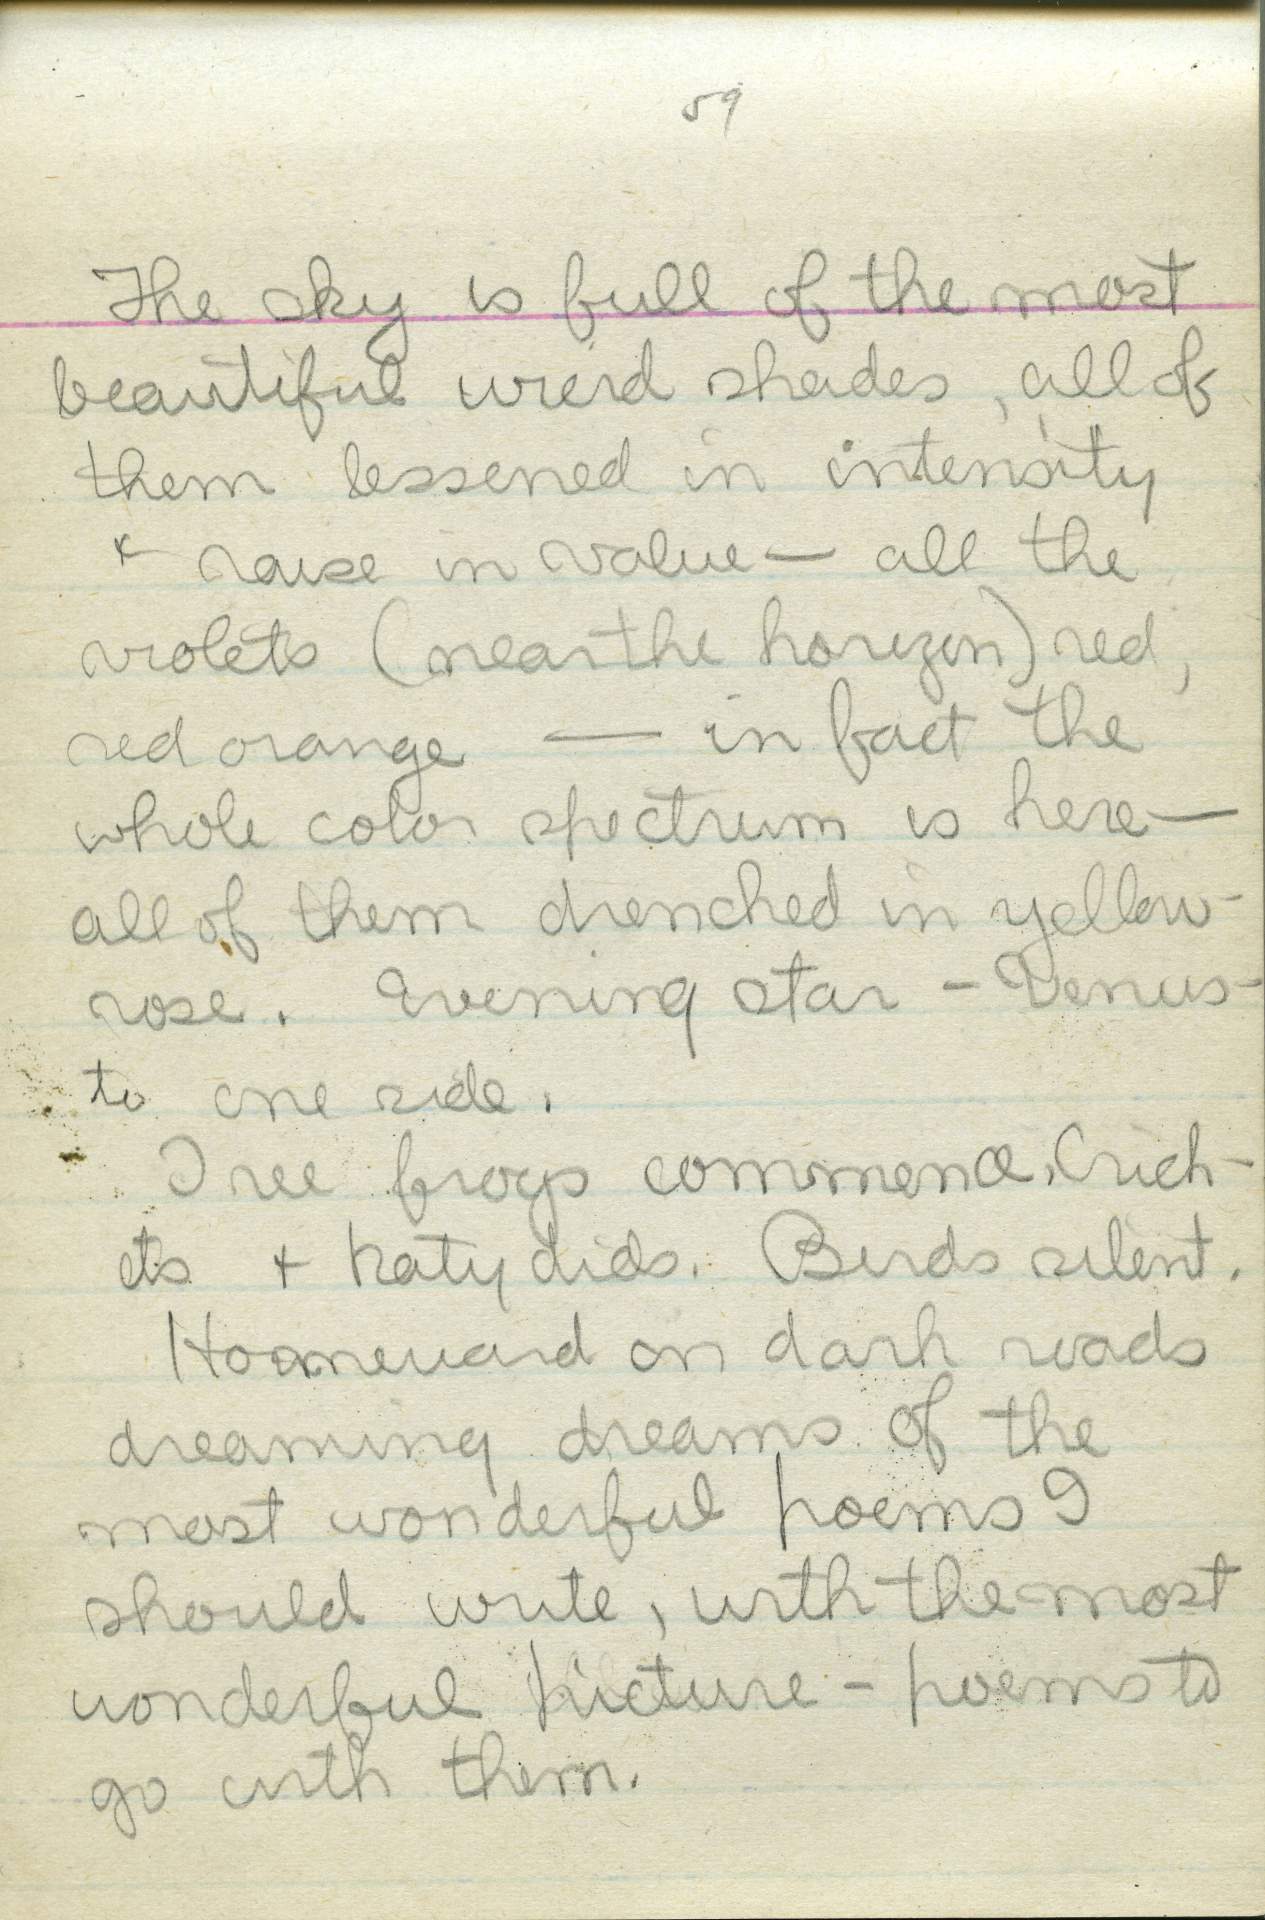 59
The sky is full of the most
beautiful wierd shades, all of
them lessened in intensity
& raise in value — all the
violets (near the horizon) red,
red orange — in fact the
whole color spectrum is here —
all of them drenched in yellow-
rose. Evening star - Venus -
to one side.
Tree frogs commence, Crick-
ets & Katydids. Birds silent.
Homeward on dark roads
dreaming dreams of the
most wonderful poems I
should write, with the most
wonderful picture - poems to
go with them.